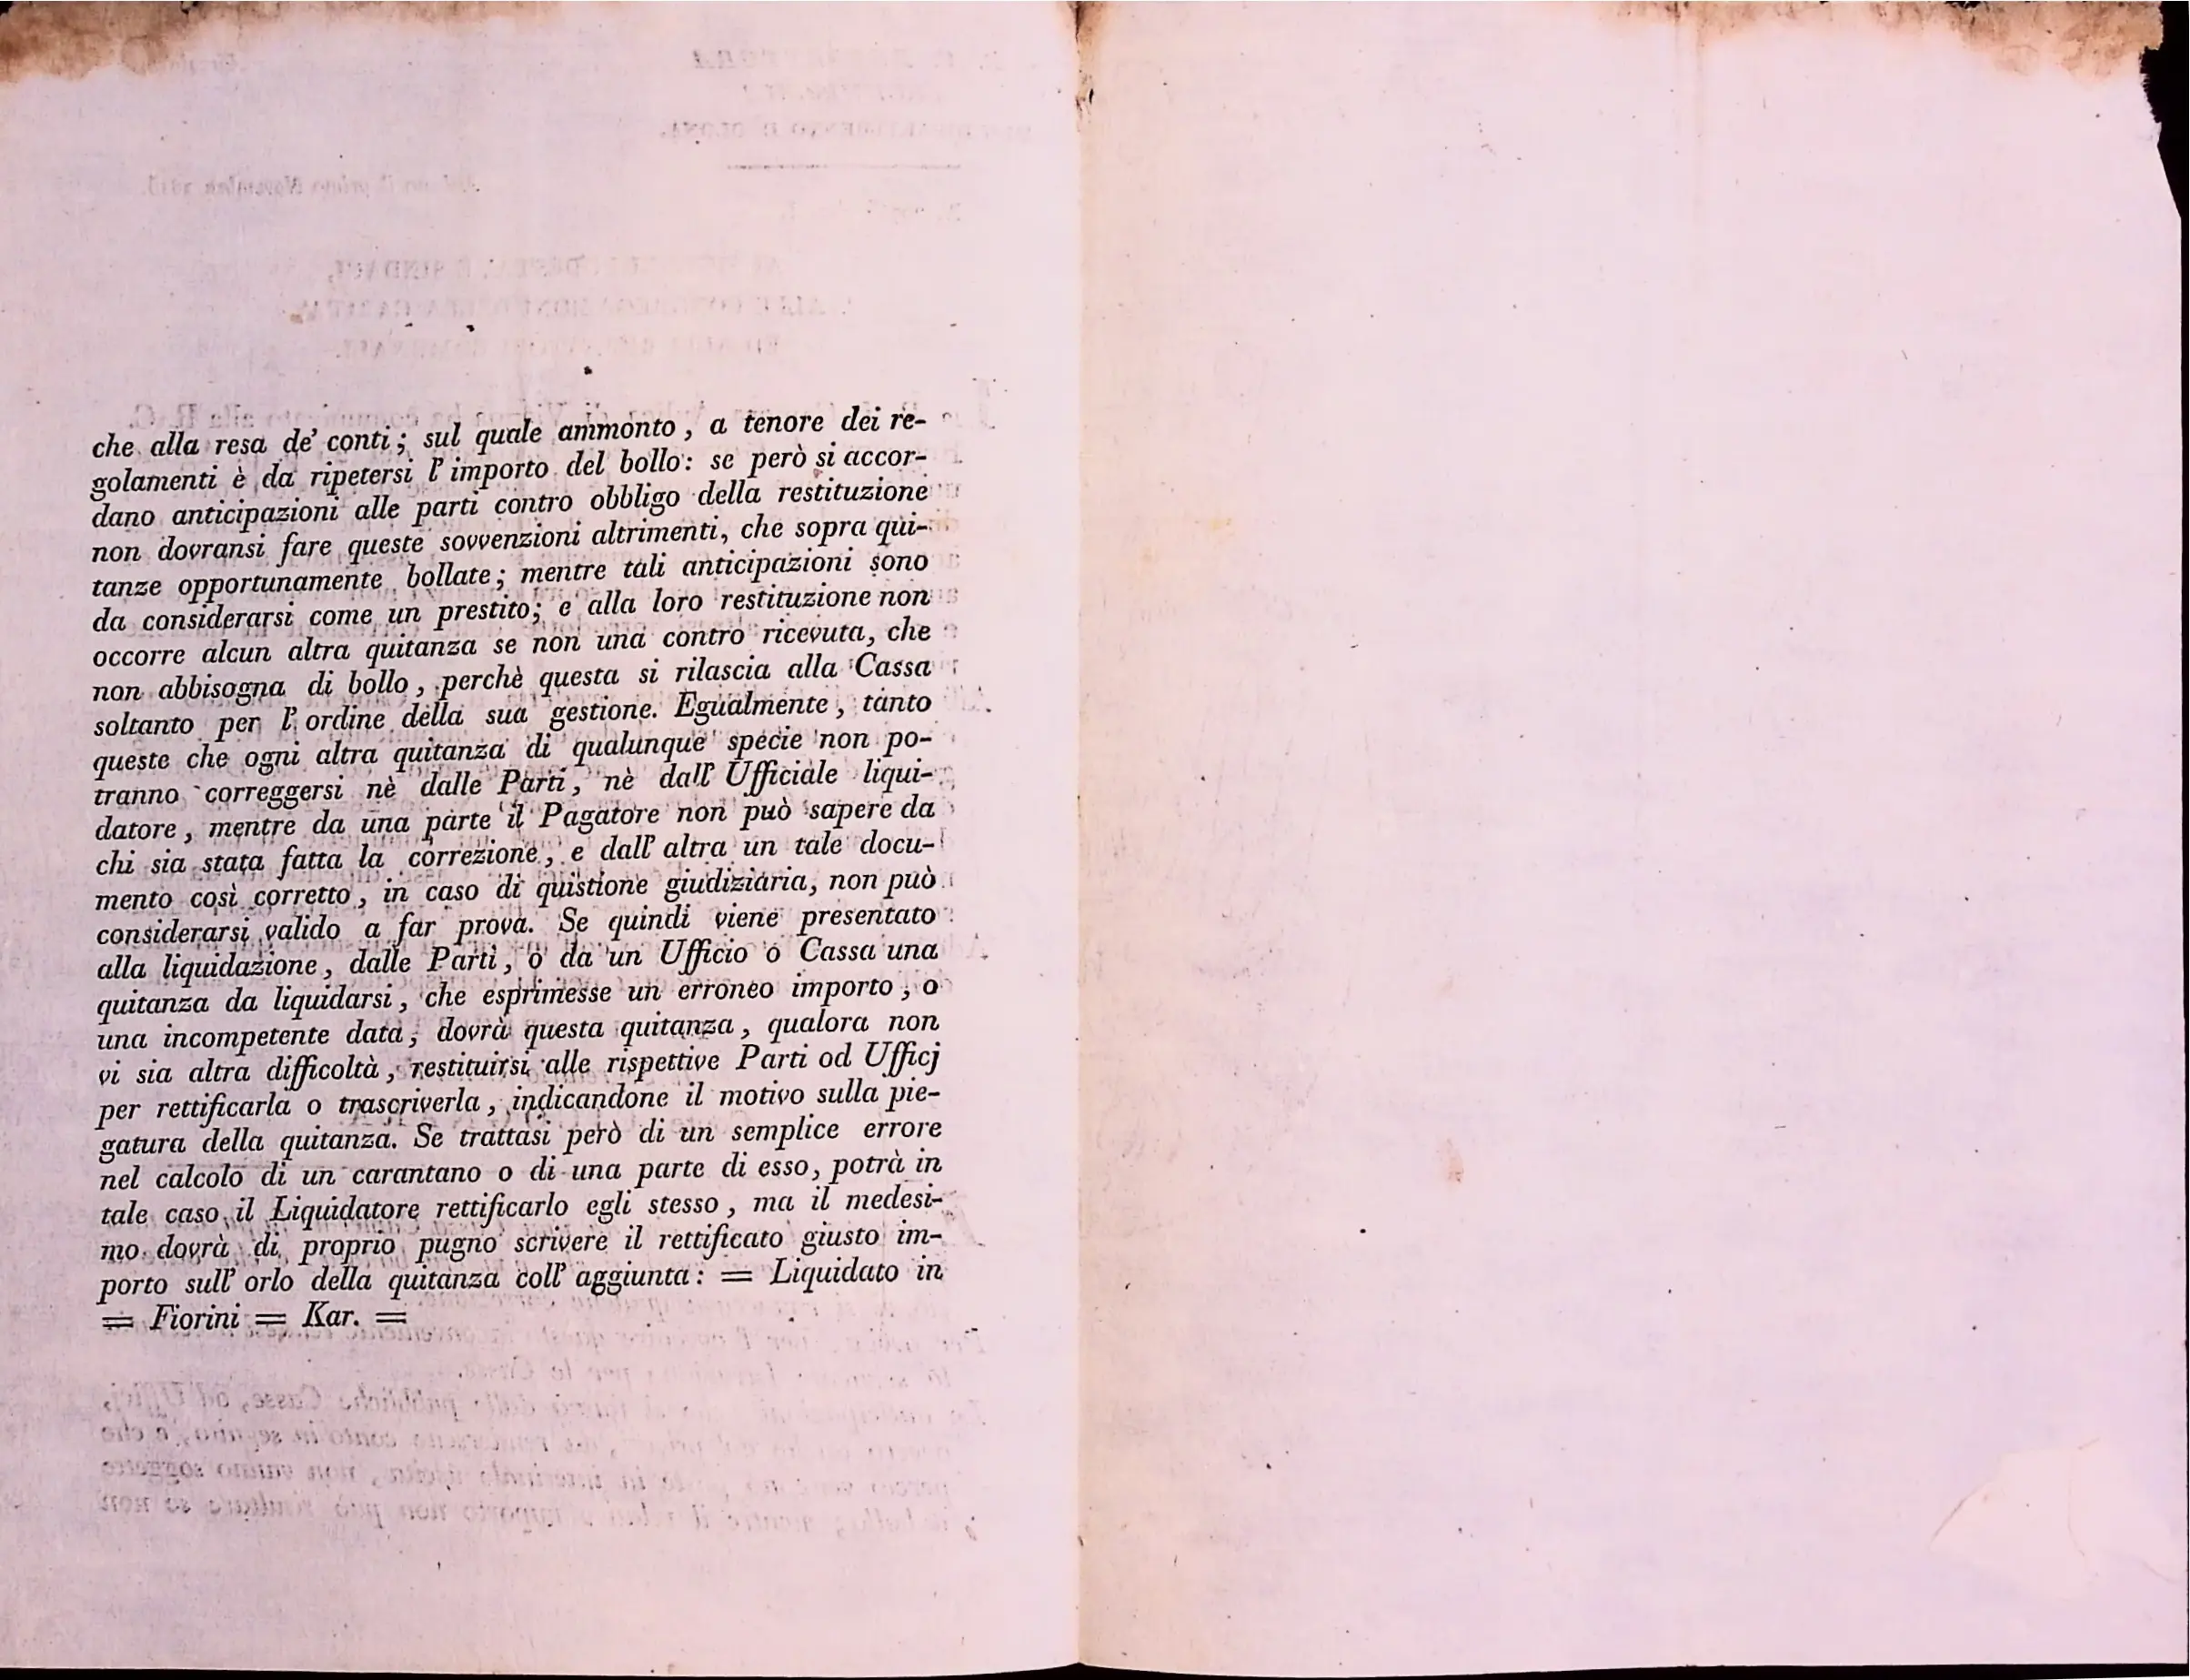 che alla resa de' conti; sul quale ammonto, a tenore dei re-
golamenti è da ripetersi l'importo del bollo: se però si accor-
dano anticipazioni alle parti contro obbligo della restituzione
non dovransi fare queste sovvenzioni altrimenti, che sopra qui-
tanze opportunamente bollate; mentre tali anticipazioni sono
da considerarsi come un prestito; e alla loro restituzione non
occorre alcun altra quitanza se non una contro ricevuta, che
non abbisogna di bollo, perchè questa si rilascia alla Cassa
soltanto per l'ordine della sua gestione. Egualmente, tanto
queste che ogni altra quitanza di qualunque specie non po-
tranno correggersi nè dalle Parti, nè dall'Ufficiale liqui-
datore, mentre da una parte il Pagatore non può sapere da
chi sia stata fatta la correzione, e dall'altra un tale docu-
mento così corretto, in caso di quistione giudiziaria, non può
considerarsi valido a far prova. Se quindi viene presentato
alla liquidazione, dalle Parti, o da un Ufficio o Cassa una
quitanza da liquidarsi, che esprimesse un erroneo importo, o
una incompetente data, dovrà questa quitanza, qualora non
vi sia altra difficoltà, restituirsi alle rispettive Parti od Ufficj
per rettificarla o trascriverla, indicandone il motivo sulla pie-
gatura della quitanza. Se trattasi però di un semplice errore
nel calcolo di un carantano o di una parte di esso, potrà in
tale caso il Liquidatore rettificarlo egli stesso, ma il medesi-
mo dovrà di proprio pugno scrivere il rettificato giusto im-
porto sull'orlo della quitanza coll'aggiunta: = Liquidato in
= Fiorini = Kar. =